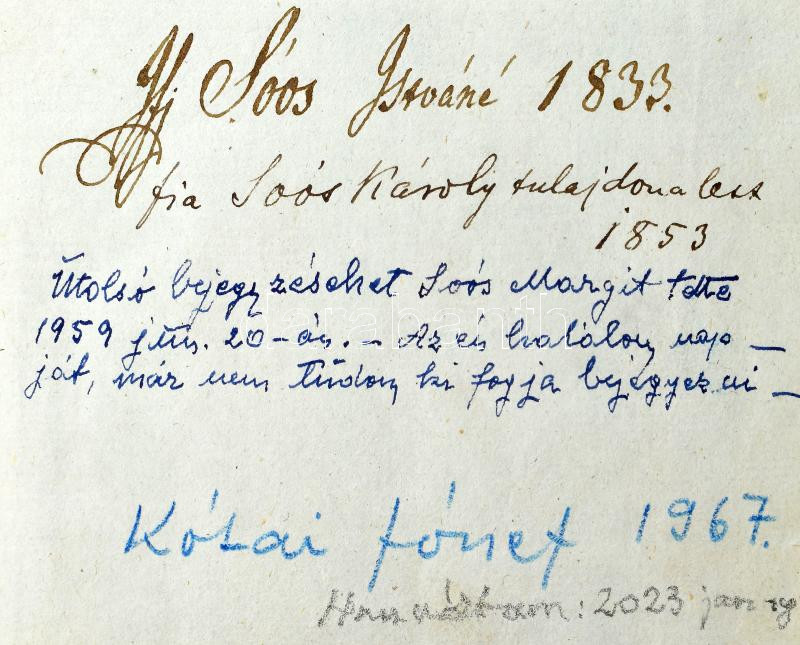 Ifj Sóos Istváné 1833.
fia Soós Károly tulajdona lesz
1853
Útolsó bejegyzéseket Soós Margit tette
1959 jún. 20-án. – Az én halálom nap –
ját, már nem tudom ki fogja bejegyezni –
Kótai József 1967.
2023 jan